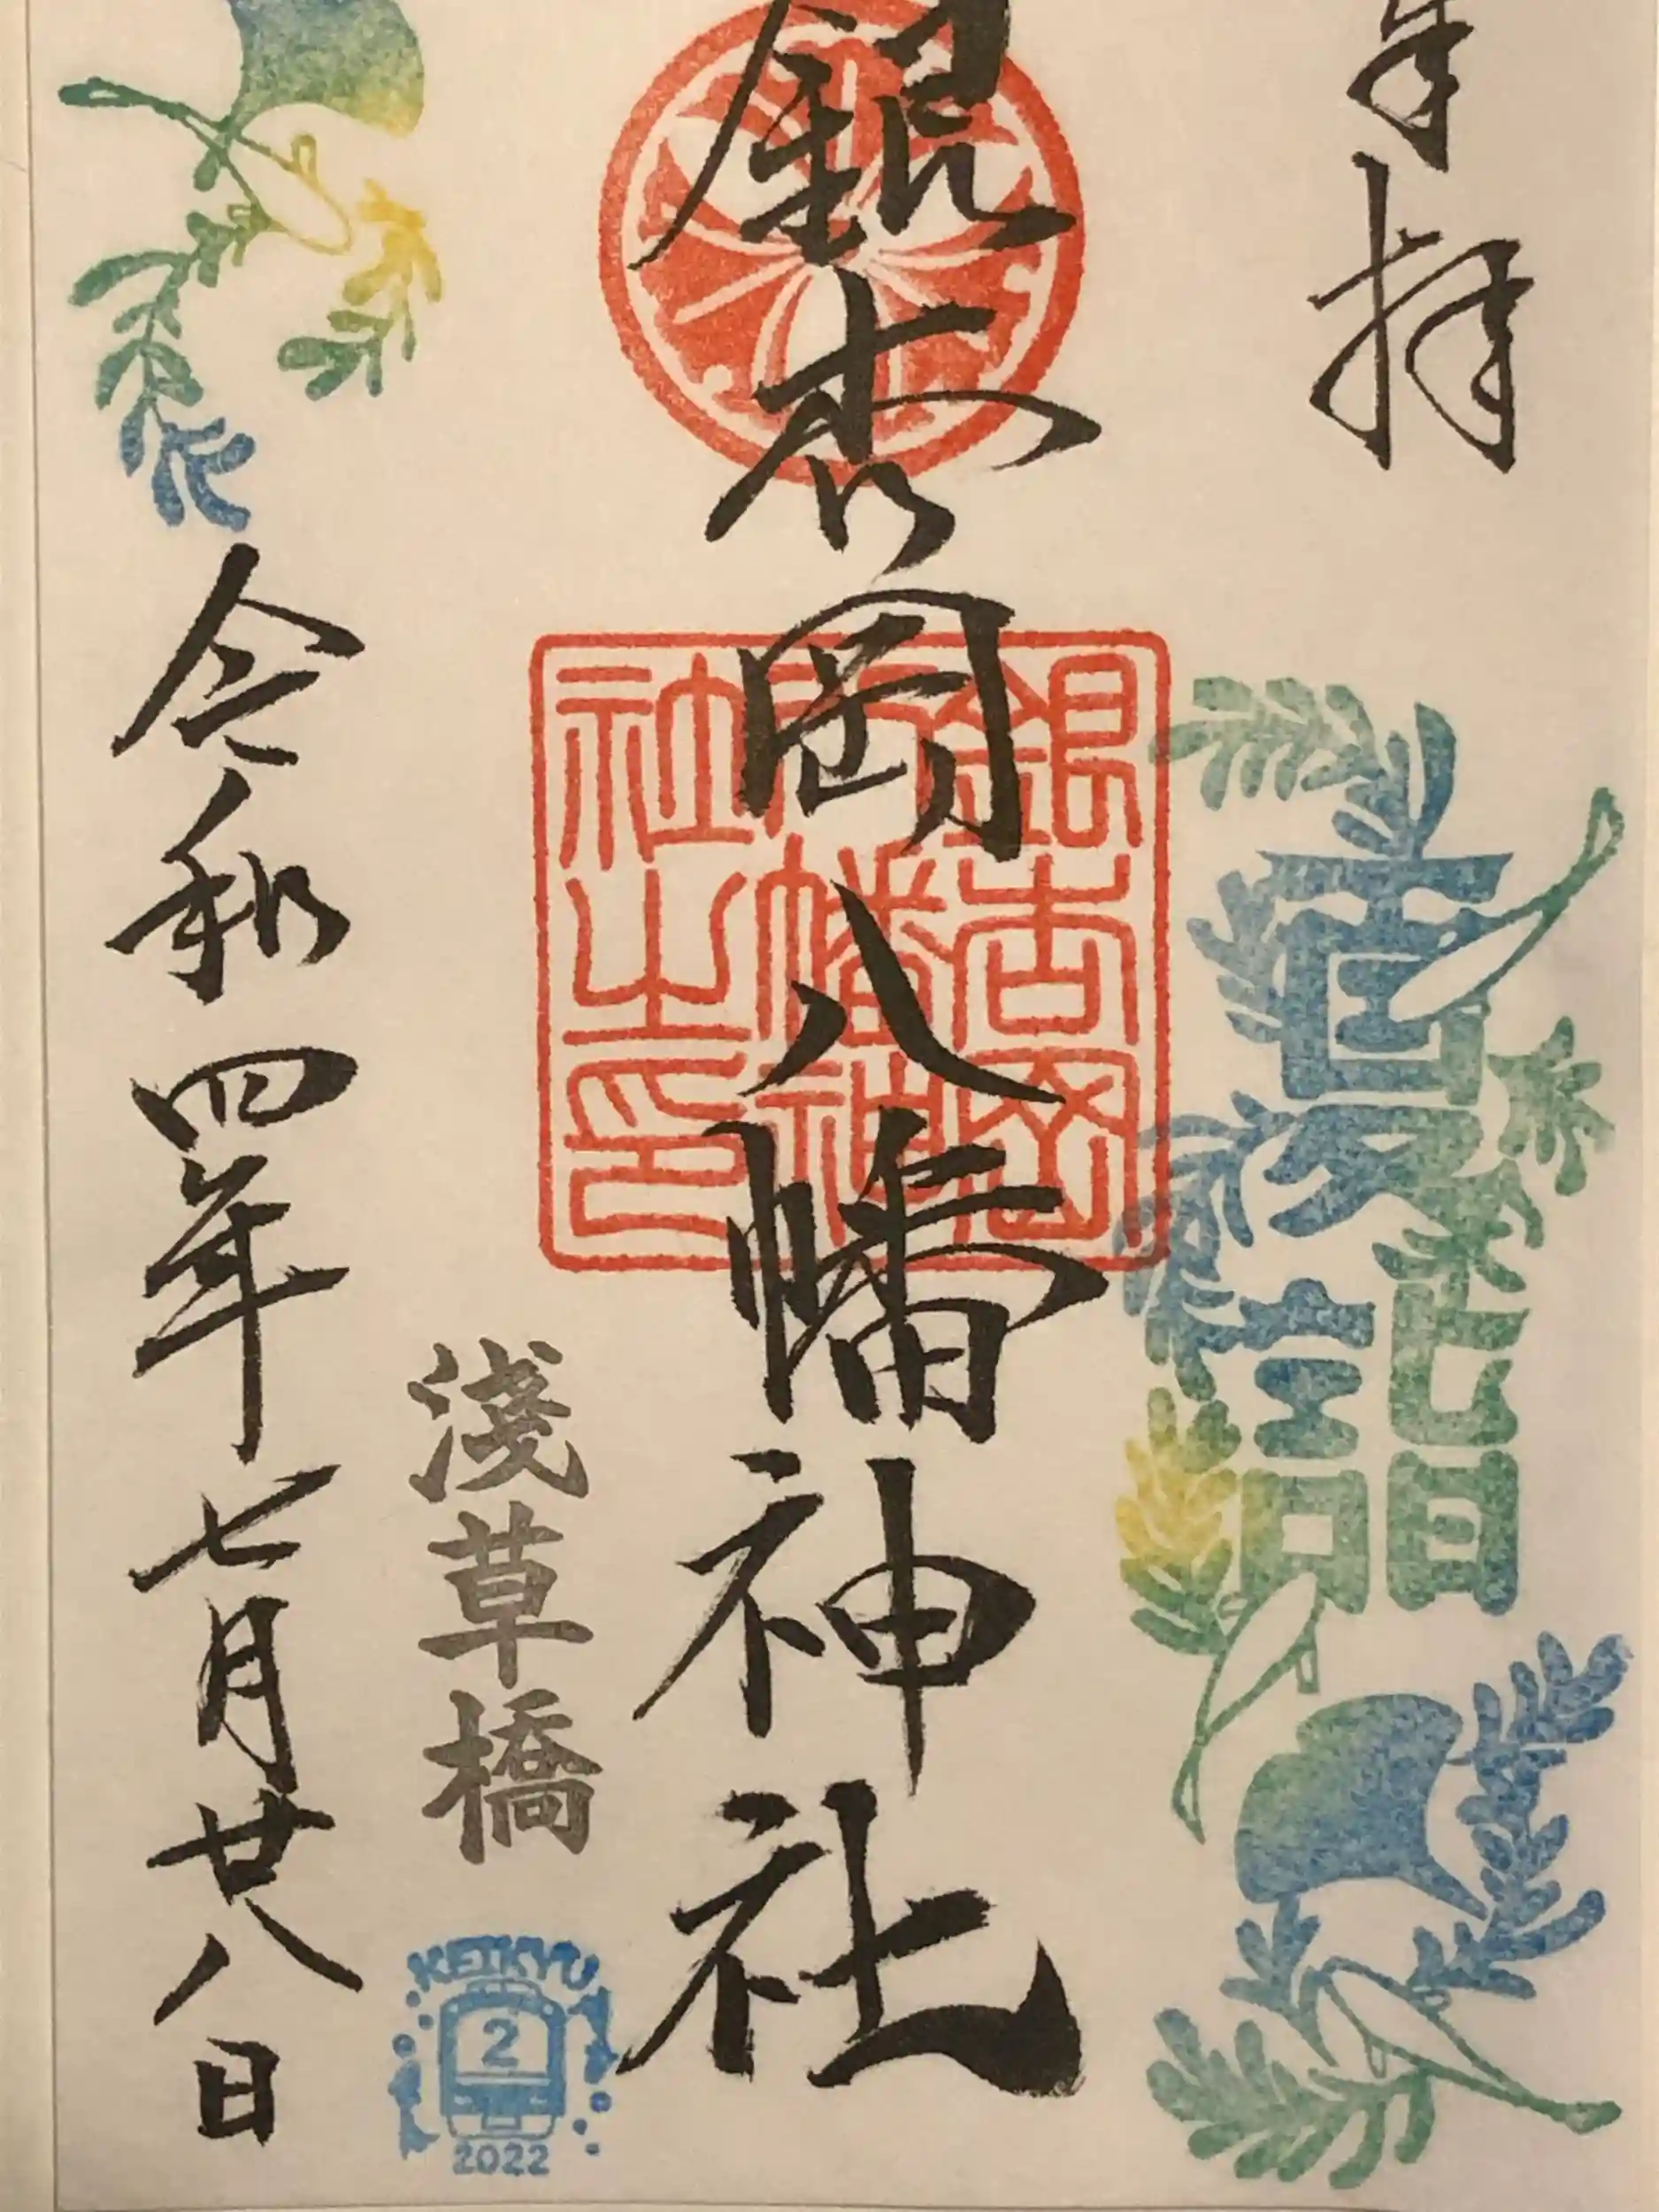 奉拝
夏詣
銀杏岡八幡神社
銀杏岡
八幡神
社之印
淺草橋
KEIKYU
2
2022
令和四年七月廿八日